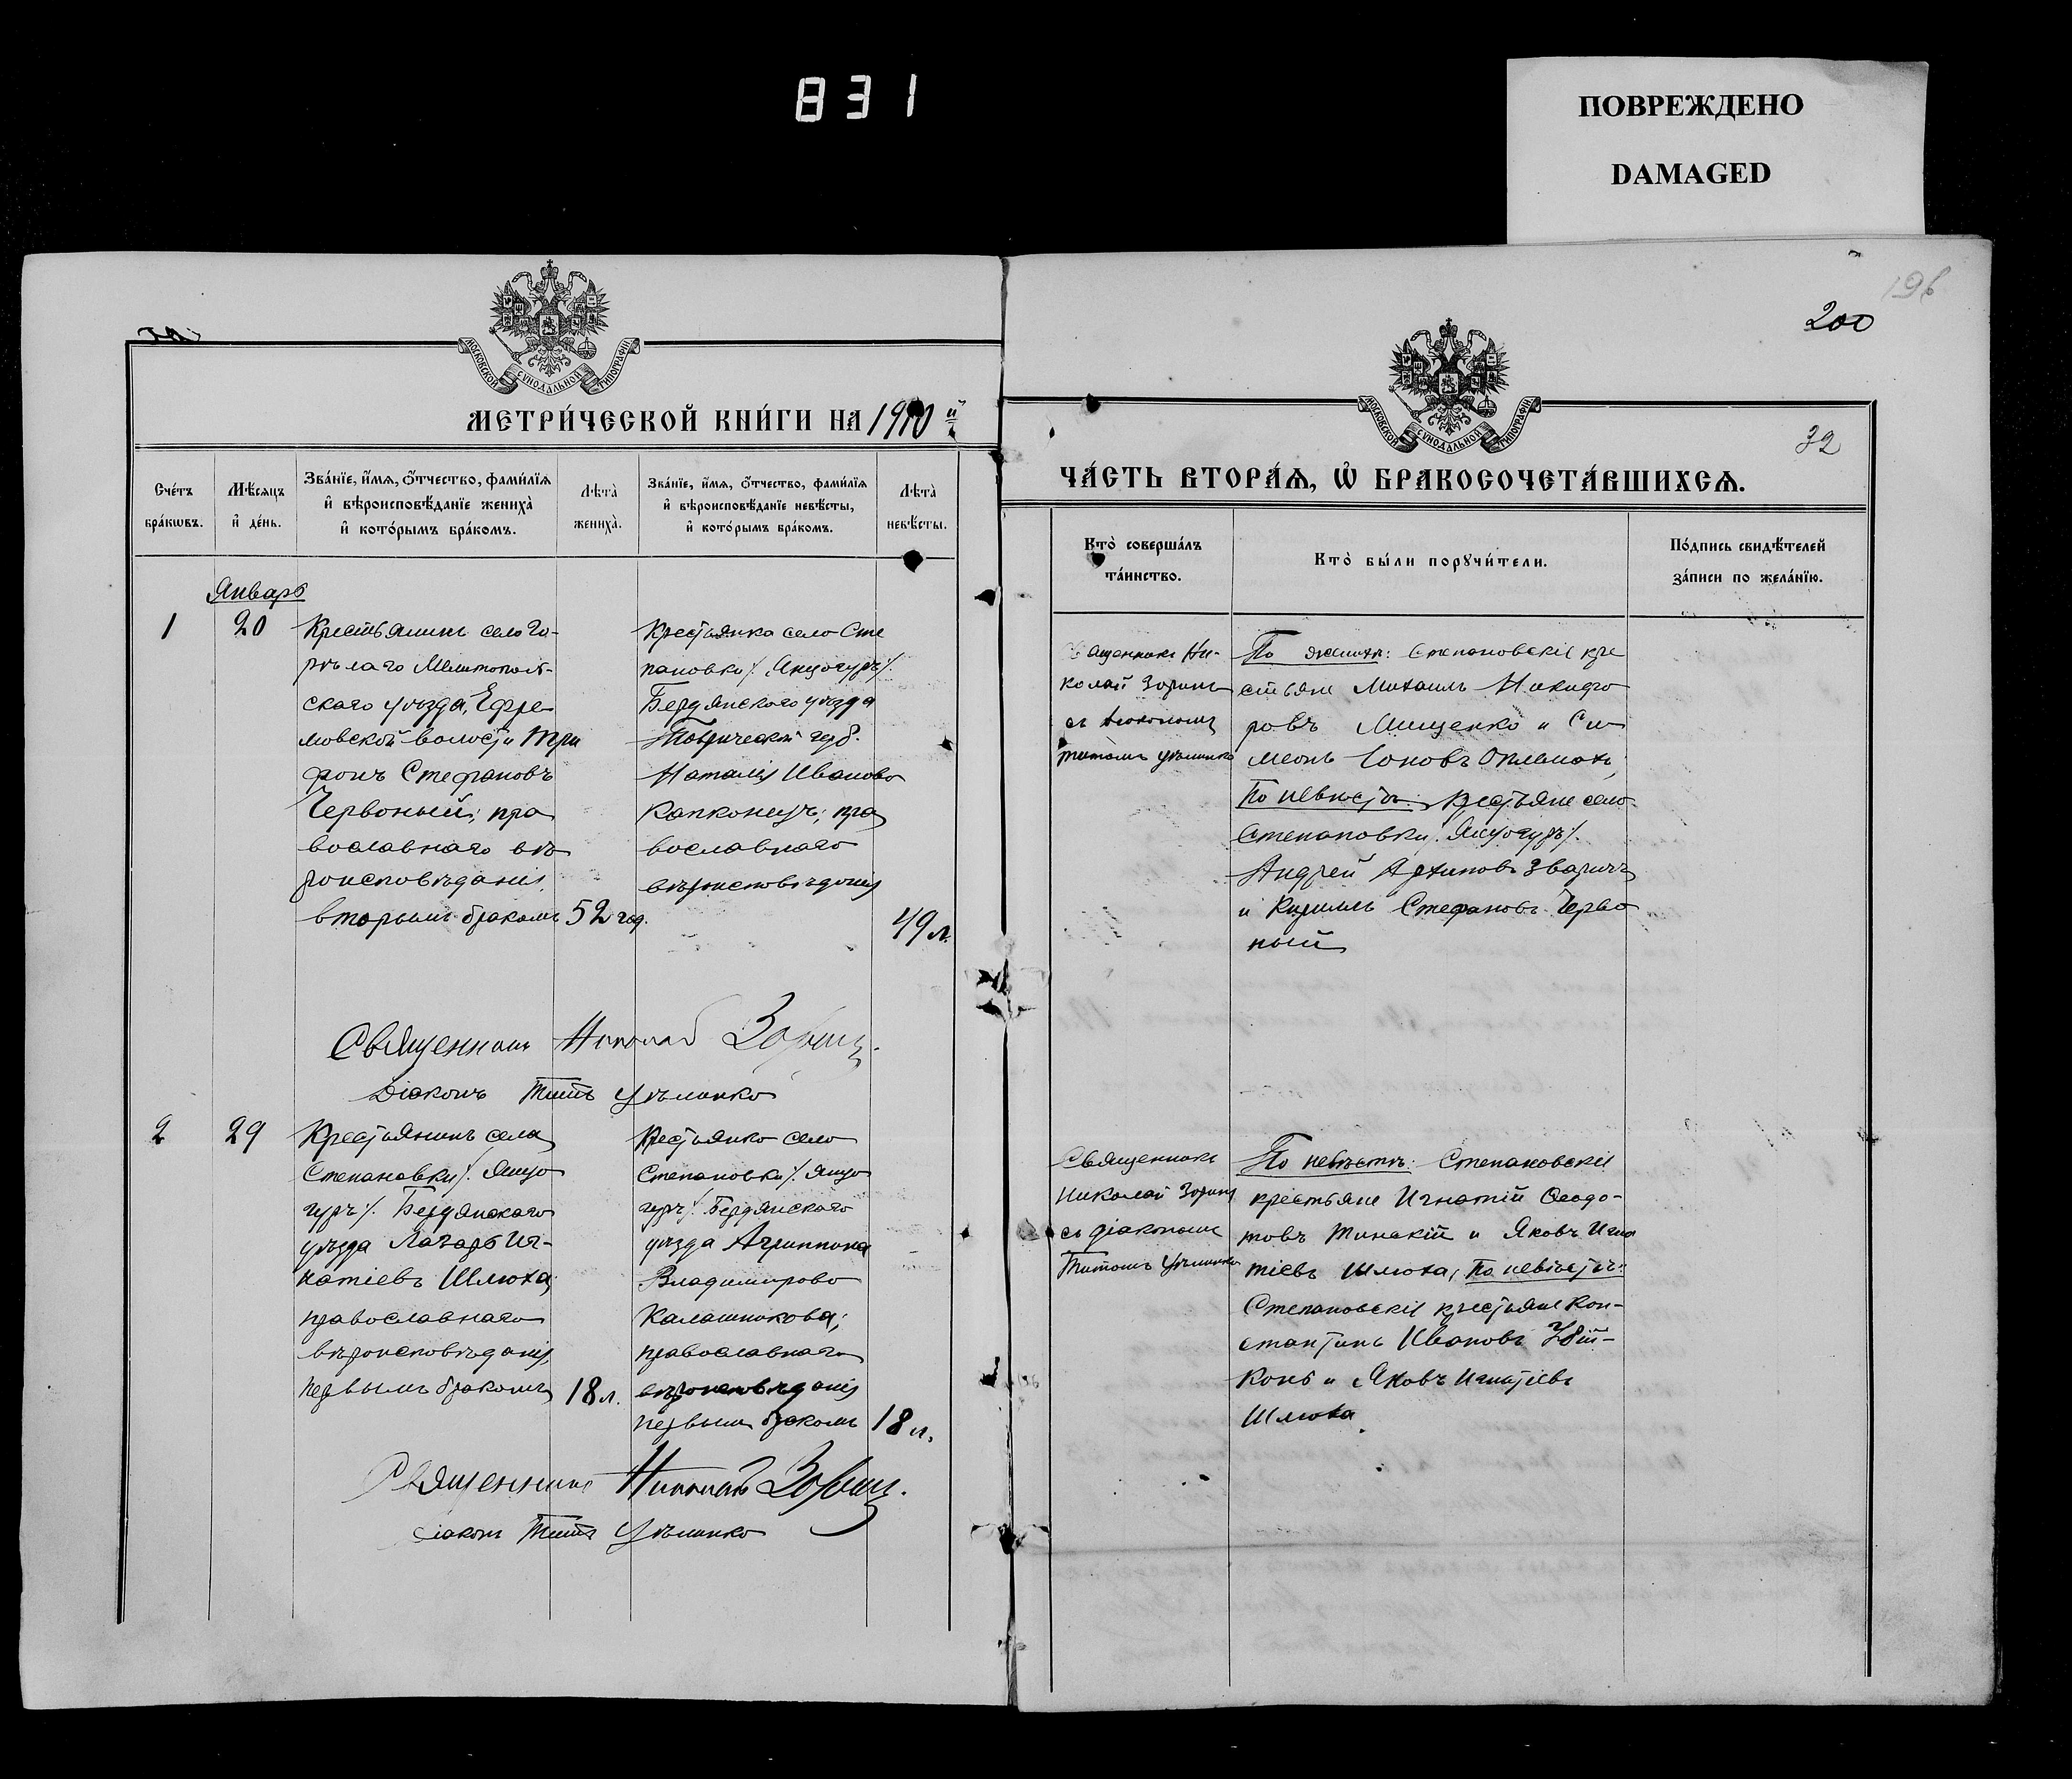 831
ПОВРЕЖДЕНО
DAMAGED
196
200
32
МОСКОВСКОЙ СѴНОДАЛЬНОЙ ТИПОГРАФІИ
МЕТРИ́ЧЕСКОЙ КНИ́ГИ НА 1910 й
Сче́тъ бра́кѡвъ.
Мѣ́сяцъ и҆ де́нь.
Зва́нїе, и҆́мя, ѻ҆́тчество, фами́лїя
и҆ вѣроисповѣ́данїе жениха̀
и҆ кото́рымъ бра́комъ.
Лѣта̀ жениха̀.
Зва́нїе, и҆́мя, ѻ҆́тчество, фами́лїя
и҆ вѣроисповѣ́данїе невѣ́сты,
и҆ кото́рымъ бра́комъ.
Лѣта̀ невѣ́сты.
Январь
1
20
Крестьянинъ села Го-
рѣлаго Мелитополь-
скаго уѣзда, Ефре-
мовской волости Три
фонъ Стефановъ
Червоный; пра
вославнаго вѣ
роисповѣданія,
вторымъ бракомъ
52 год.
Крестьянка села Сте
пановки /. Янцогуръ/.
Бердянскаго уѣзда
Таврической губ.
Наталія Иванова
Капконецъ; пра
вославнаго
вѣроисповѣданія
49 л.
Священникъ Николай Зоринъ.
Діаконъ Титъ
2
29
Крестьянинъ села
Степановки /. Янцо
гуръ/. Бердянскаго
уѣзда Лазарь Иг-
натіевъ Шлюха;
православнаго
вѣроисповѣданія,
первымъ бракомъ
18 л.
Крестьянка села
Степановки /. Янцо
гуръ/. Бердянскаго
уѣзда Агриппина
Владимирова
Калашникова;
православнаго
вѣроисповѣданія
первымъ бракомъ
18 л.
Священникъ Николай Зоринъ.
Діаконъ Титъ
МОСКОВСКОЙ СѴНОДАЛЬНОЙ ТИПОГРАФІИ
ЧА́СТЬ ВТОРА́Ѧ, Ѽ БРАКОСОЧЕТА́ВШИХСѦ.
Кто̀ соверша́лъ та́инство.
Кто̀ бы́ли порꙋчи́тели.
По́дпись свидѣ́телей
за́писи по жела́нїю.
Священникъ Ни-
колай Зоринъ
съ діакономъ
Титомъ
По женихѣ: Степановскіе кре
стьяне Михаилъ Никифо
ровъ Мищенко и Си
меонъ Іоновъ
По невѣстѣ: крестьяне села
Степановки /. Янцогуръ/.
Андрей Архиповъ Зваричъ
и Кириллъ Стефановъ Черво
ный
Священникъ
Николай Зоринъ
съ діакономъ
Титомъ
По невѣстѣ: Степановскіе
крестьяне Игнатій Ѳеодо-
товъ Тинскій и Яковъ Игна
тіевъ Шлюха, По невѣстѣ:
Степановскіе крестьяне Кон-
стантинъ Ивановъ
и Яковъ Игнатіевъ
Шлюха.